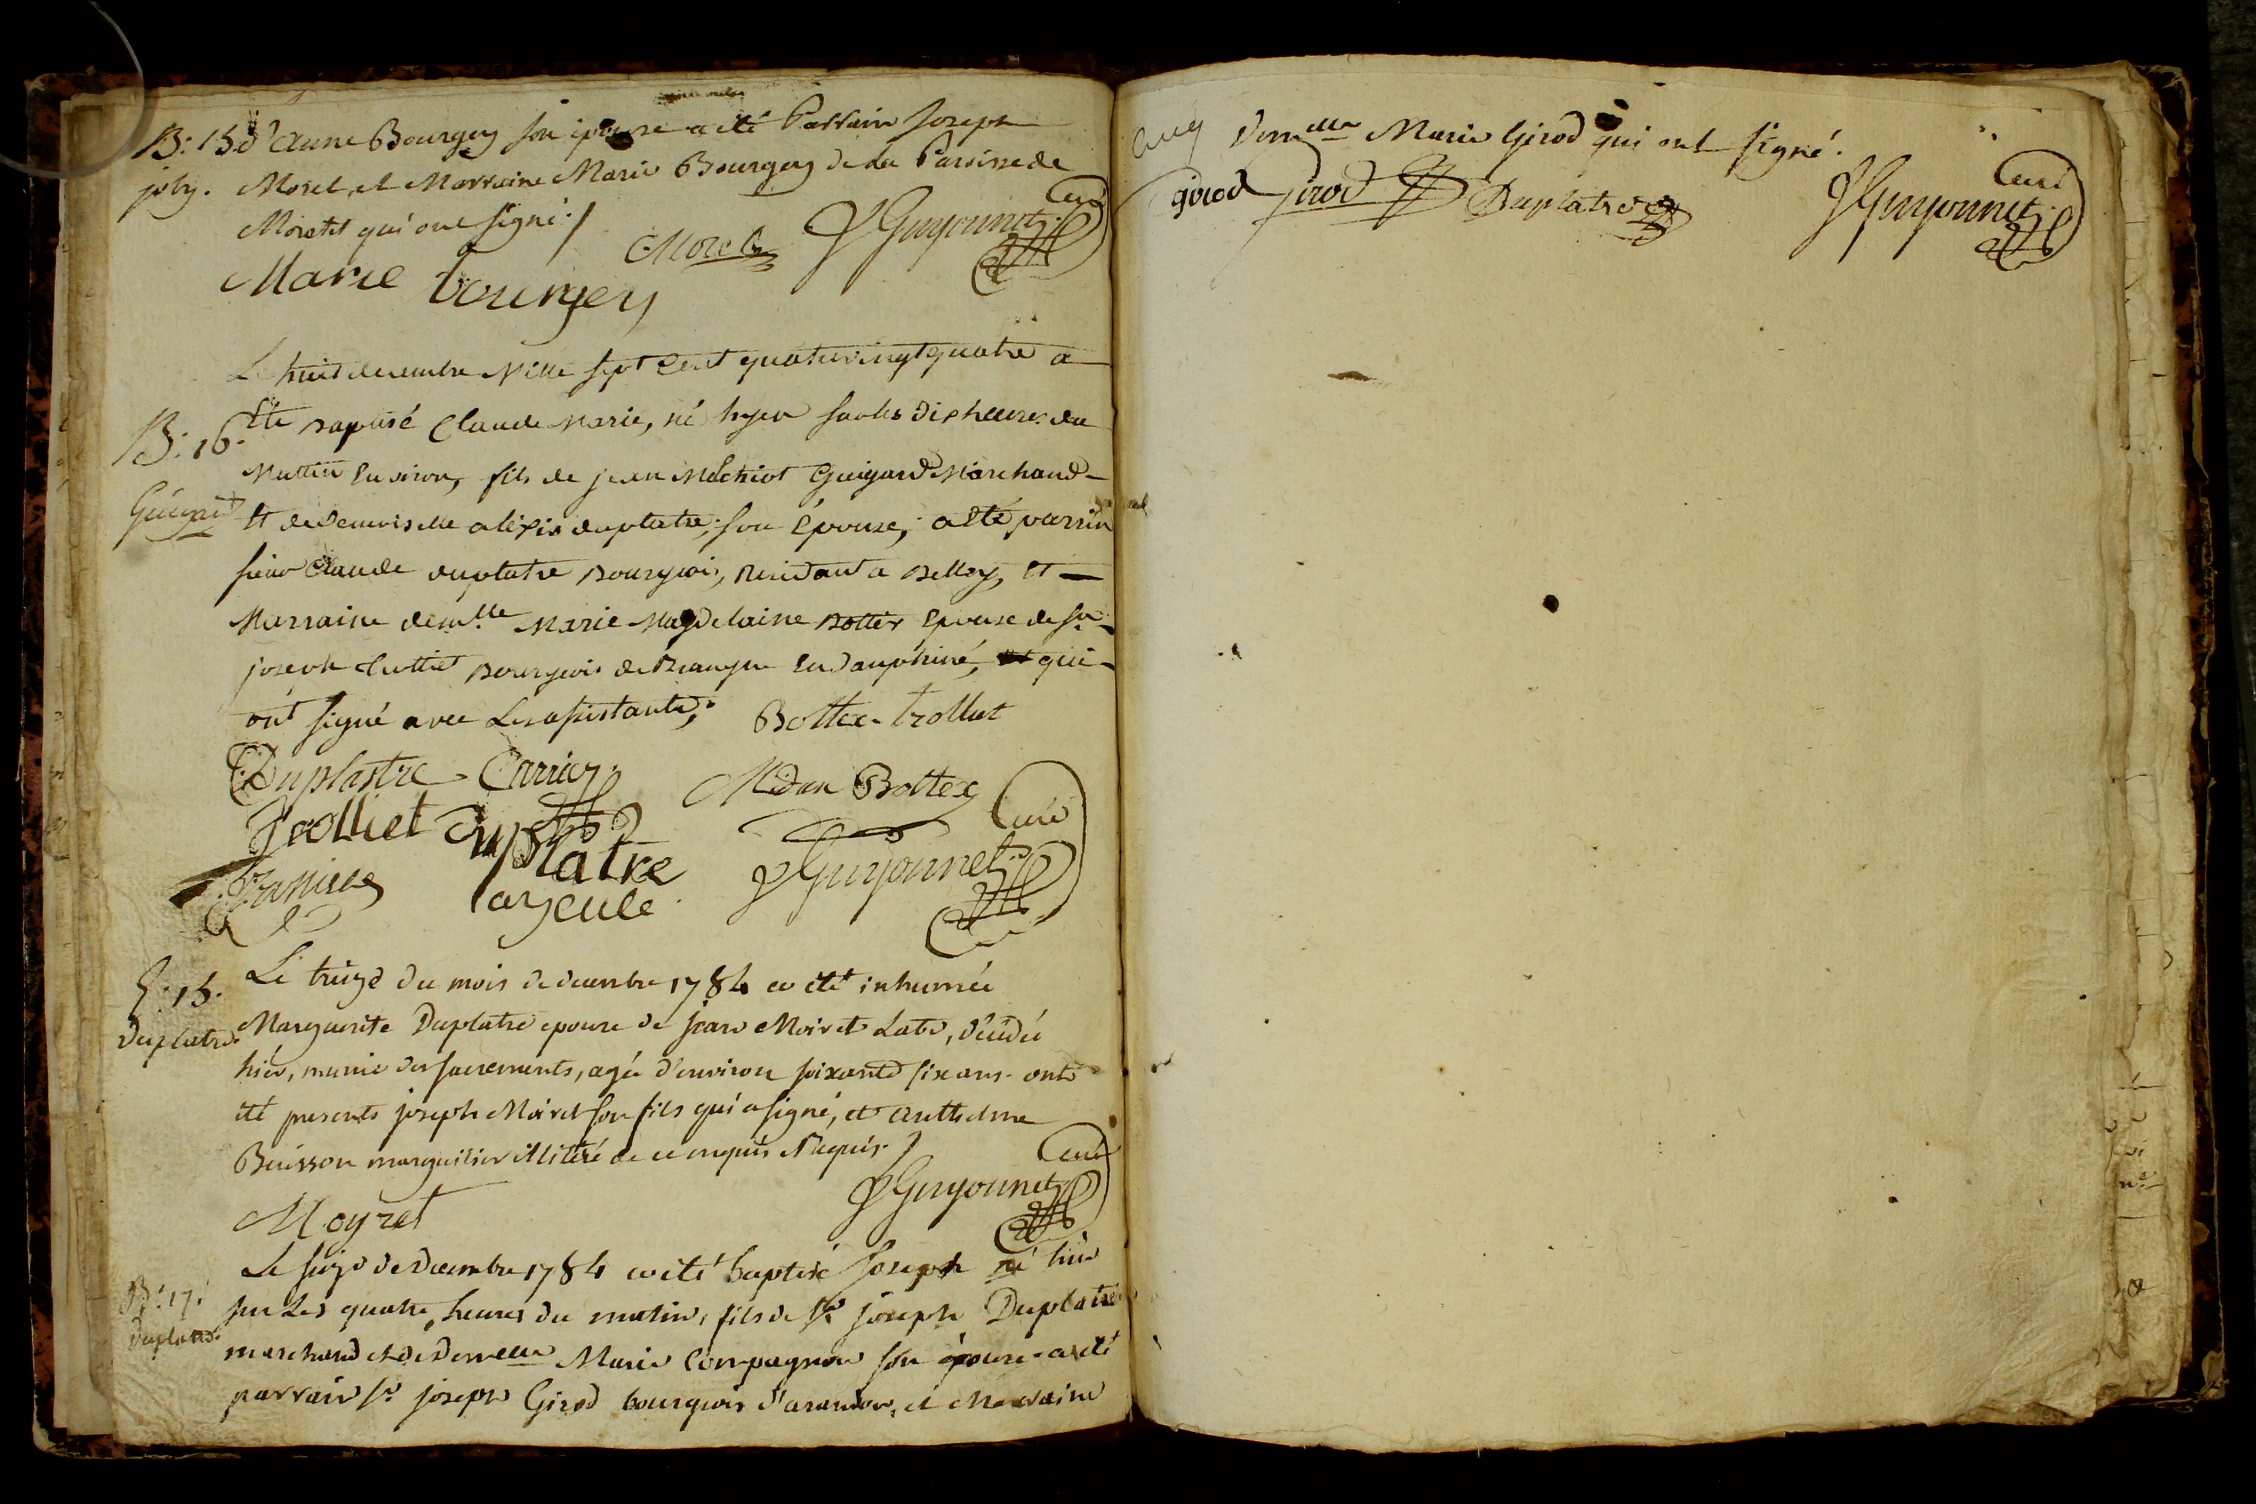 B: 15. d'anne Bourgey son épouse a été Parrain Joseph
joly. Morel et Marraine Marie Bourgey de la Paroisse de
Moretel qui ont signé./.
Curé
Morel JGuyonnet
Marie bourgey
Le huit decembre Mille sept Cent quatrevingtquatre a
B: 16. Eté Baptisé Claude Marie, né hyer sur les dix heures du
Mattin Environ, fils de jean Melchiot Guigard Marchand
Guigard Et de Demoiselle alexis duplatre, son Epouse; a Eté parrin
sieur Claude duplatre Bourgeois, Residant a Belley, Et
Marraine dem.lle Marie Magdelaine Epouse de Sr.
joseph Bourgeois de en dauphiné, qui
ont signé avec Les assistants;. Bottex-trolliet
Duplastre Carrier
Bottex
Curé
Trolliet duplatre
JGuyonnet
S: 15. Le treize du mois de decembre 1784 a été inhumée
Duplatre. Marguerite Duplatre epouse de jean Moiret Labé, décédée
hier, munie des sacrements, agée d'environ soixante six ans. ont
été presents joseph Moiret son fils qui a signé, et anthelme
Buisson marguilier illitéré de ce enquis Requis./.
Curé
JGuyonnet
Moyret
Le seize de Decembre 1784 a été baptisé Joseph né hier
B: 17. sur Les quatre heures du matin, fils de Sr. joseph Duplatre
Duplatre. marchand et de Demelle Marie Compagnon son épouse. a été
parrain Sr. joseph Girod bourgeois d'arandon, et Marraine
Demelle Marie Girod qui ont signé.
Curé
girod girod Duplatre JGuyonnet